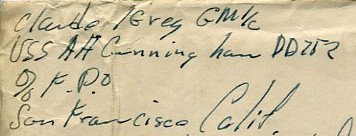 Claude Kreg GM1/c
USS AA Cunningham DD752
℅ F.P.O
San Francisco Calif